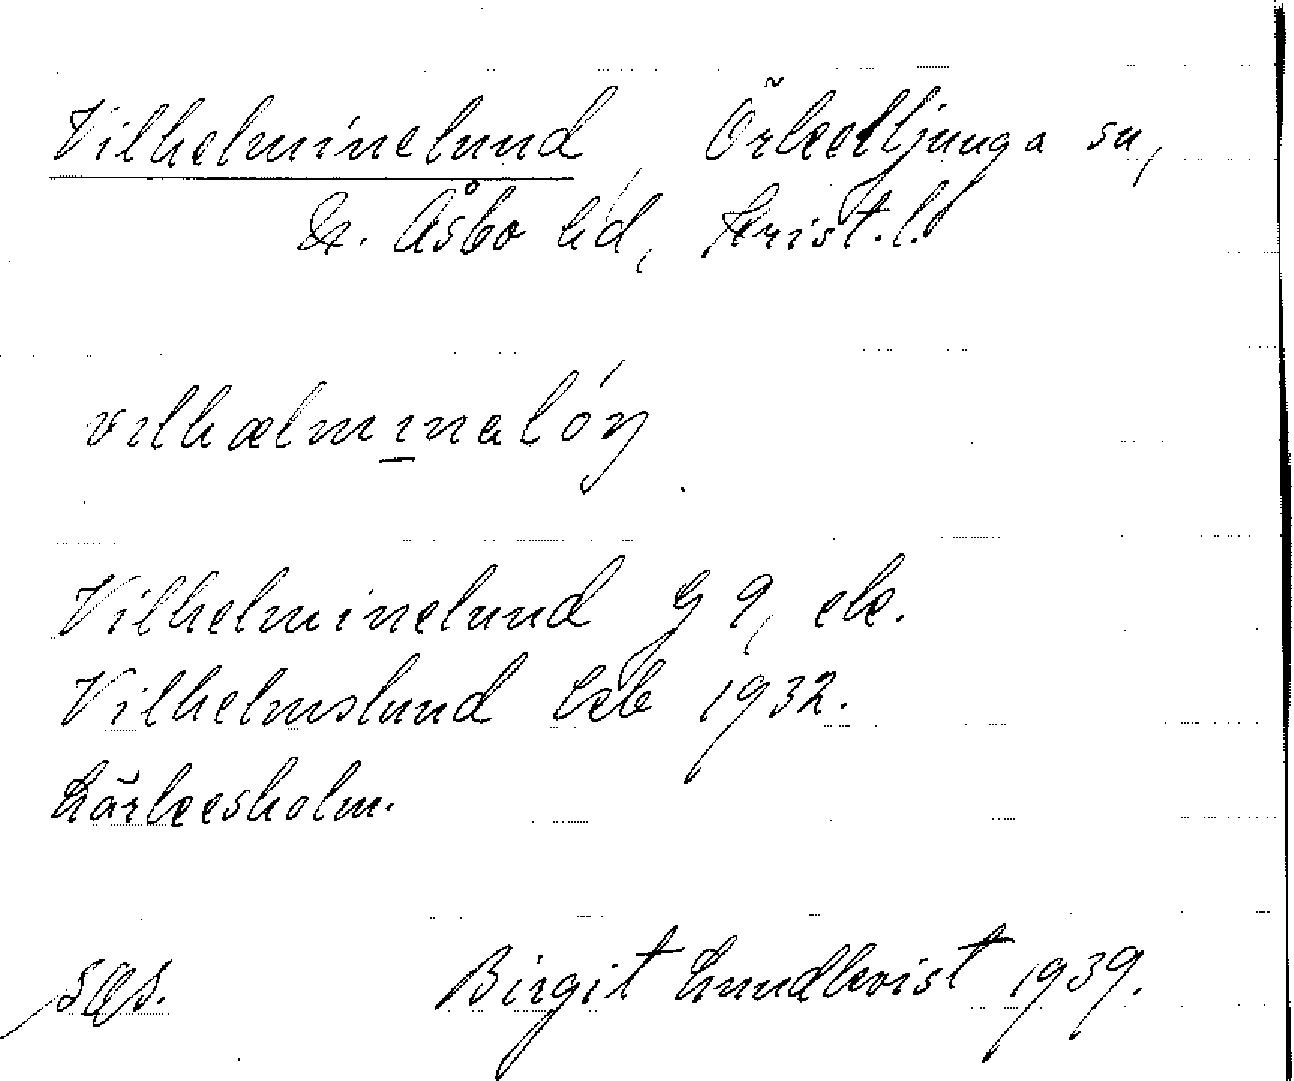 Vilhelminelund, Örkelljunga sn,
N. Åsbo hd, Krist. l.
vilhælminalóŋ
Vilhelminelund G 9, ek.
Vilhelmslund Leb 1932.
Lärkesholm.
SOS. Birgit Lundkvist 1939.